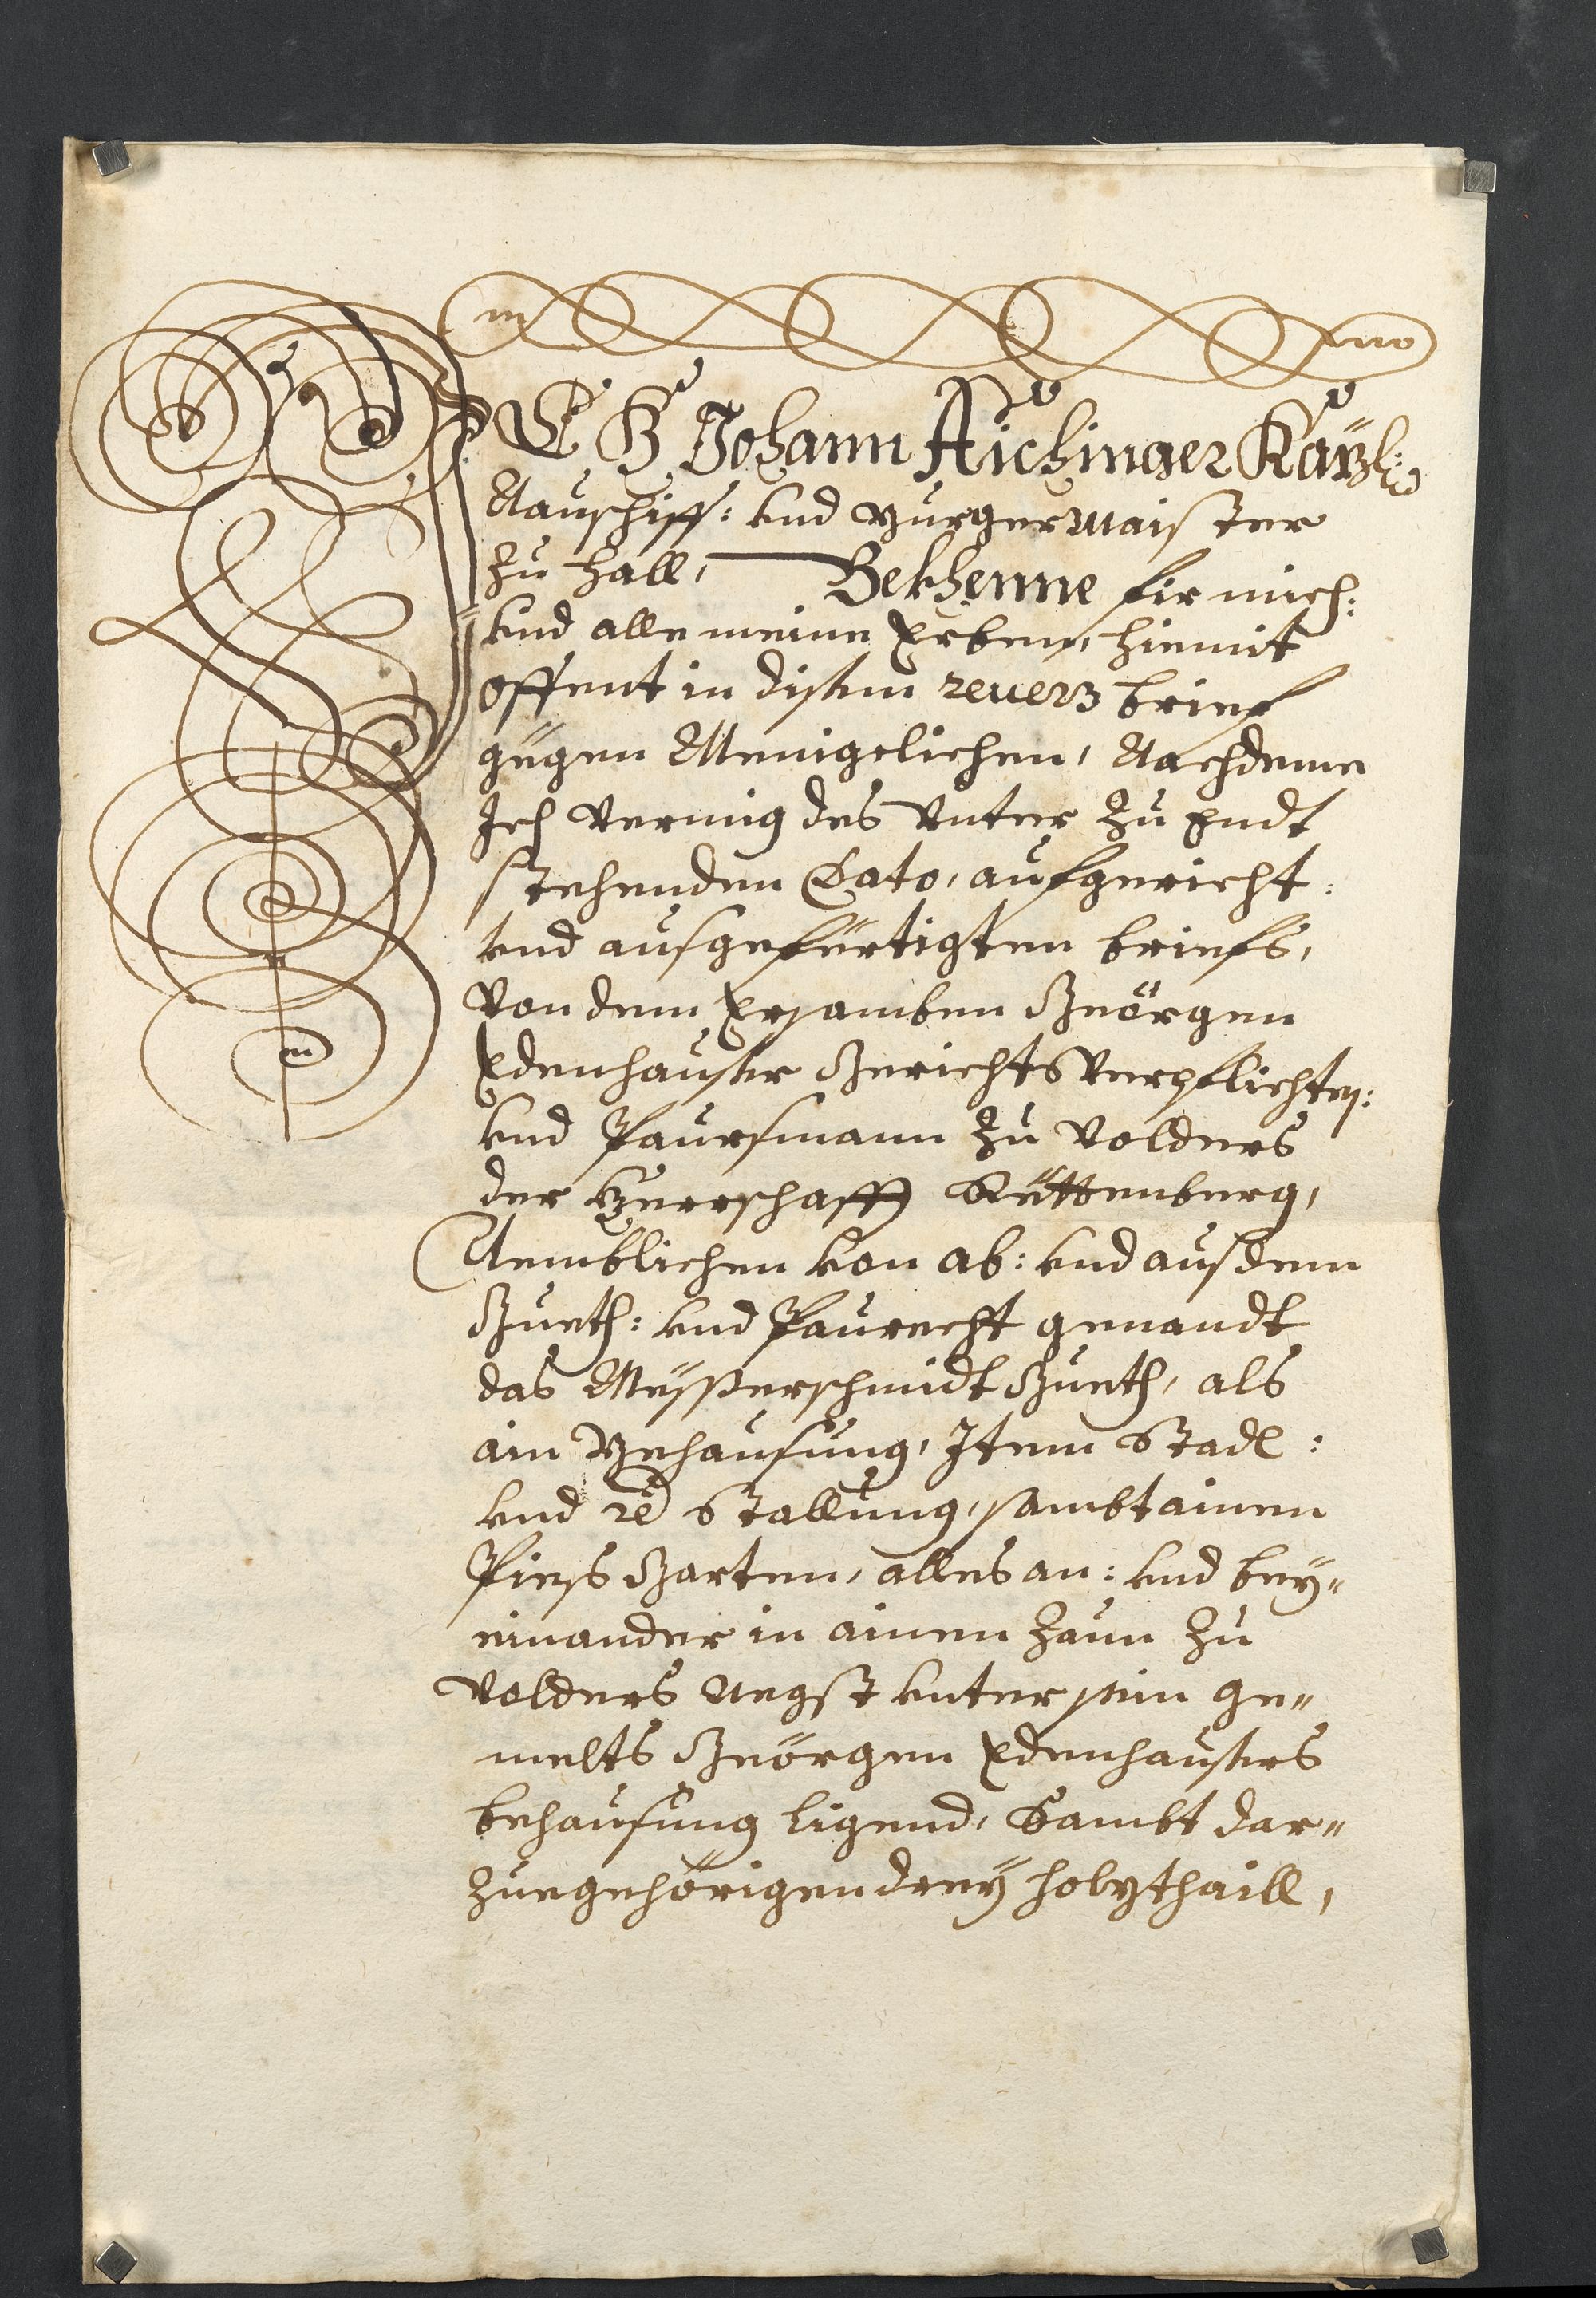 ICH Johann Aichinger Kaÿl:
Nauschiff: vnd Burgermaister
zu Hall, Bekhenne fir mich:
vnd alle meine Erben, hiemit
offent in disem reuers brief
gegen Menigelichen, Nachdeme
Ich vermig des vnter zu Endt
stehenden Dato, aufgericht:
vnd ausgefürtigten briefs,
von dem Ersamben Geörgen
Edenhauser Gerichtsverpflichten:
vnd Paursmann zu Volders
der Herrschafft Röttenberg,
Nemblichen von ab: vnd aus dem
Gueth: vnd Paurecht genandt
das Mësserschmidt Gueth, als
ain Behausung, Item Stadl:
vnd re Stallung, sambt ainem
Piess Garten, alles an: vnd beÿ„
einander in ainem Zaun zu
Volders negst vnter sein ge„
melts Geörgen Edenhausers
behausung ligend, Sambt dar„
zuegehörigen dreÿ holzthaill,